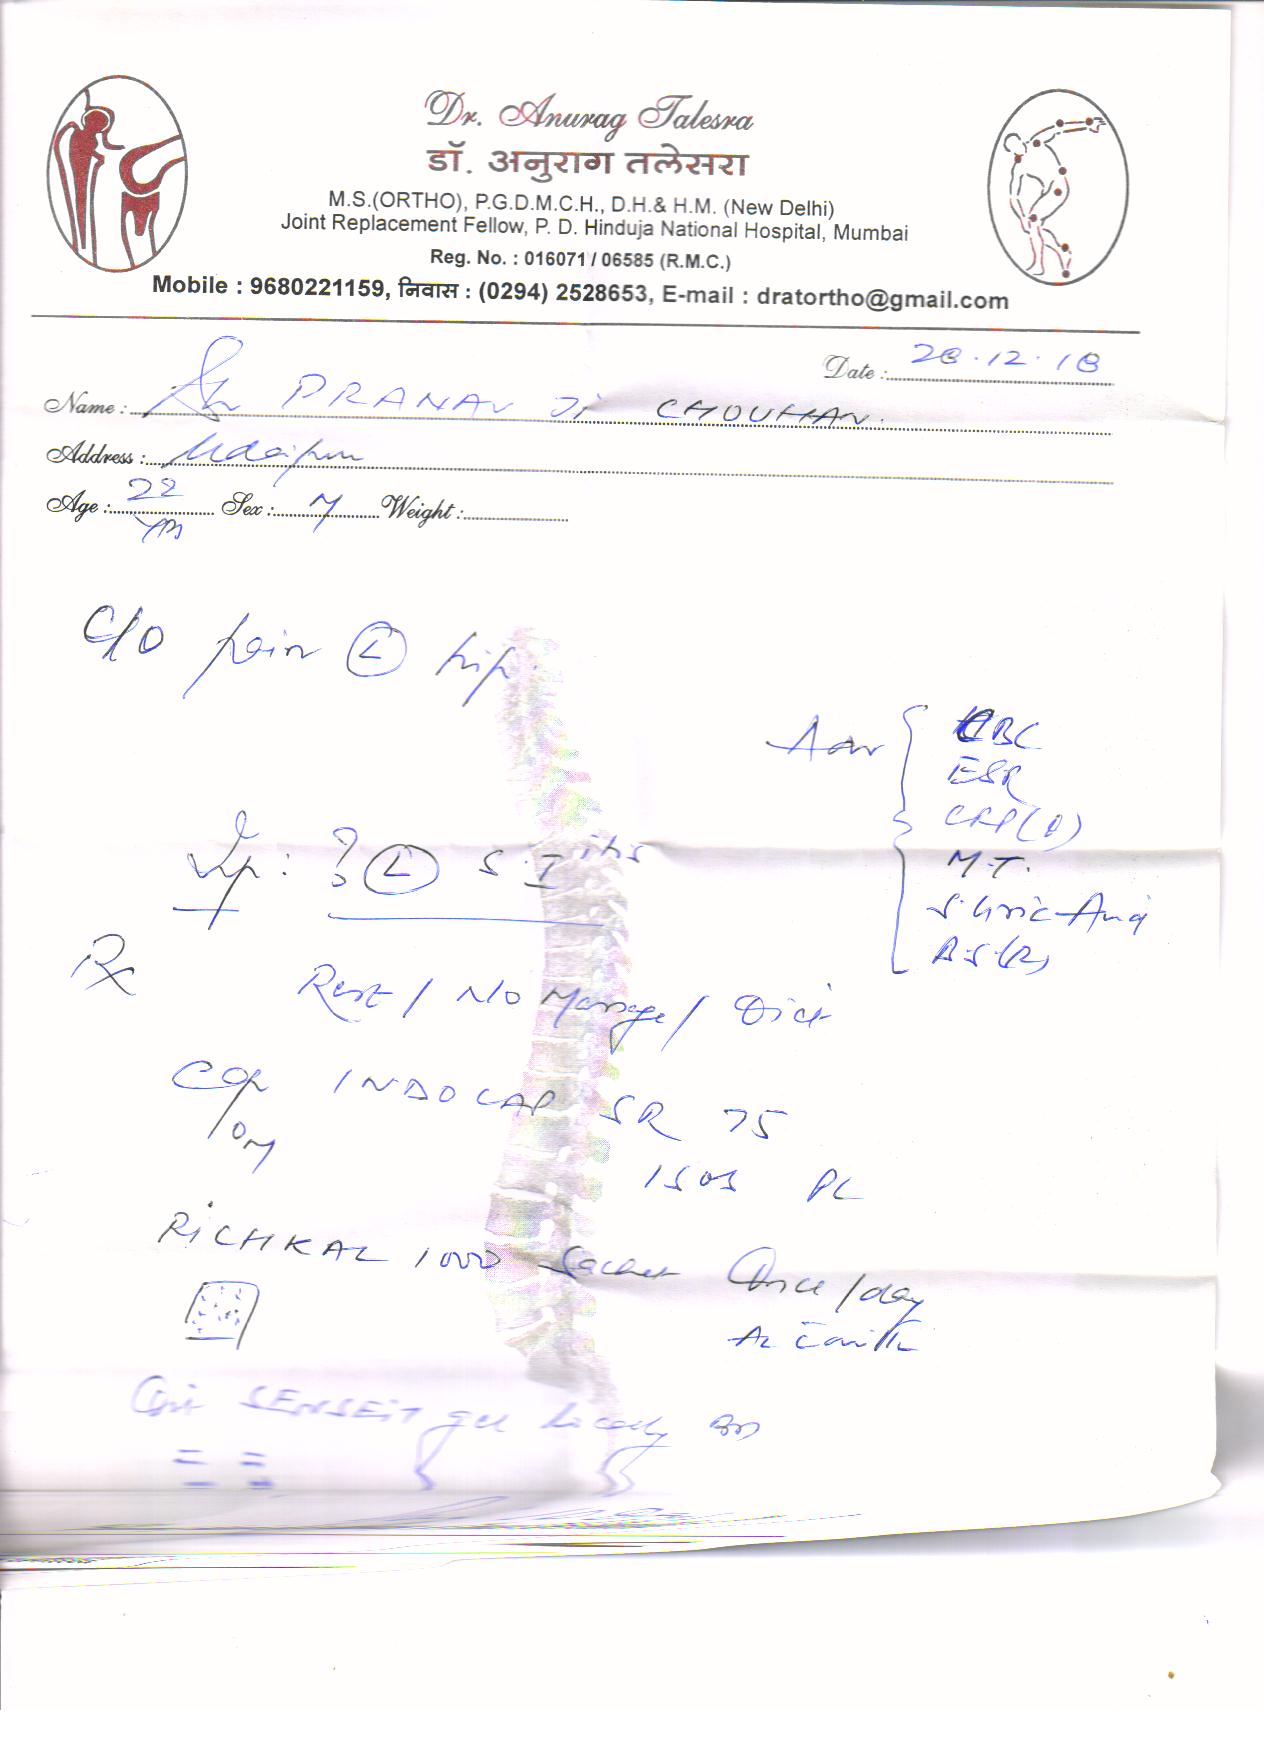 Dr. Anurag Talesra
डॉ. अनुराग तलेसरा
M.S.(ORTHO), P.G.D.M.C.H., D.H.& H.M. (New Delhi)
Joint Replacement Fellow, P. D. Hinduja National Hospital, Mumbai
Reg. No. : 016071 / 06585 (R.M.C.)
Mobile : 9680221159, निवास : (0294) 2528653, E-mail : dratortho@gmail.com
Date : 28.12.18
Name : PRANAV Ji CHOUHAN.
Address : Udaipur
Age : 22 Sex : M Weight :
Yrs
C/O pain (L) hip.
Adv
CBC
ESR
CRP(Q)
M.T.
S. Uric Acid
BS(R)
Imp : ? (L) S.I itis
Rx
Rest / No Massage / Diet
Cap INDOCAP SR 75
1SOS PC
RICHKAL 1000 Sachet Once/day
SENSEIT gel Locally BD